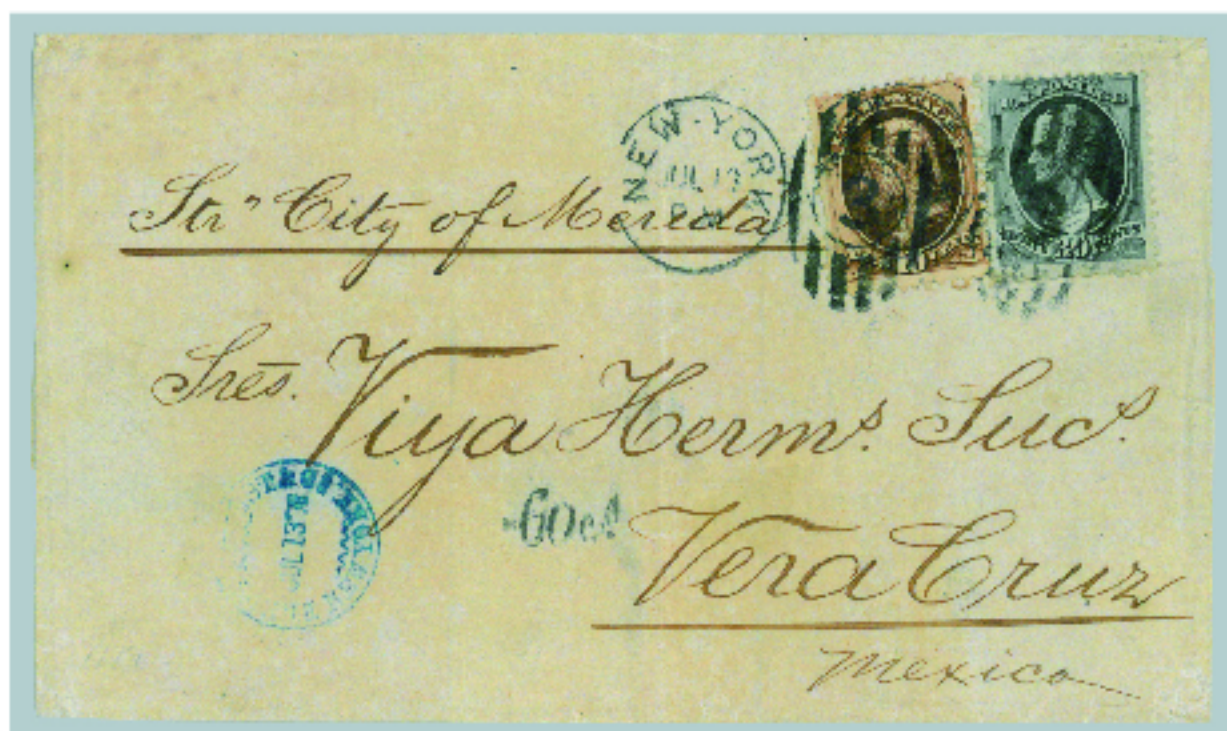 NEW-YORK
JUL 17
Str City of Mereda
Sres. Viya Herms. Sucs.
60cs
Vera Cruz
Mexico